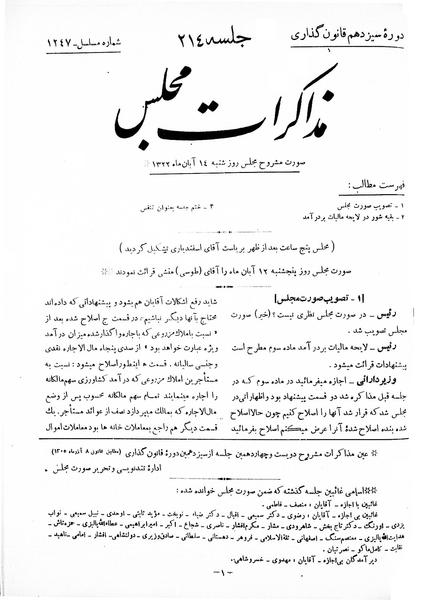 دورهٔ سیزدهم قانون گذاری
جلسه ۲۱۴
شماره مسلسل - ۱۲۴۷
مذاکرات مجلس
صورت مشروح مجلس روز شنبه ۱۴ آبان ماه ۱۳۲۲
فهرست مطالب :
۱ - تصویب صورت مجلس
۲ - بقیه شور در لایحه مالیات بر درآمد
۳ - ختم جلسه بعنوان تنفس
( مجلس پنج ساعت بعد از ظهر بریاست آقای اسفندیاری تشکیل گردید )
صورت مجلس روز پنجشنبه ۱۲ آبان ماه را آقای (طوسی) منشی قرائت نمودند
[۱ - تصویب صورت مجلس]
رئیس - در صورت مجلس نظری نیست؟ (خیر) صورت
مجلس تصویب شد .
رئیس - لایحه مالیات بر درآمد ماده سوم مطرح است
پیشنهادات قرائت میشود .
وزیر دارائی - اجازه میفرمائید در ماده سوم که در
جلسه قبل مذاکره شد دو قسمت پیشنهاد بود و اظهاراتی در
مجلس شد که قرار شد آنها را اصلاح کنیم چون حالا اصلاح
شده بنده اصلاح شدهٔ آنرا عرض میکنم اصلاح بفرمائید
شاید رفع اشکالات آقایان هم بشود و پیشنهاداتی که داده اند
محتاج بآنها دیگر نباشیم . در قسمت ج اصلاح شده بعد از
« نسبت باملاک مزروعی که باجاره واگذار شده میزان درآمد
ویژه عبارت خواهد بود » از سدی پنجاه مال الاجاره نقدی
وجنسی سالیانه . قسمت ه اینطور اصلاح میشود : نسبت به
مستأجرین املاک مزروعی که در آمد کشاورزی سهم مالکانه
را اجاره مینمایند تمام سهم مالکانه محسوب پس از وضع
مال الاجاره که بمالک میپردازد نصف از عوائد مستأجر . یک
قسمت دیگر هم راجع بمعاملات خانه ها بود معاملات اموال
عین مذاکرات مشروح دویست و چهاردهمین جلسه از سیزدهمین دورهٔ قانون گذاری (مطابق قانون ۸ آذر ماه ۱۳۰۵)
ادارهٔ تندنویسی و تحریر صورت مجلس
اسامی غائبین جلسه گذشته که ضمن صورت مجلس خوانده شده :
غائبین با اجازه - آقایان : منصف - فاطمی .
دیرآمدگان بی اجازه - آقایان : مهدوی - خسروشاهی .
- ۱ -